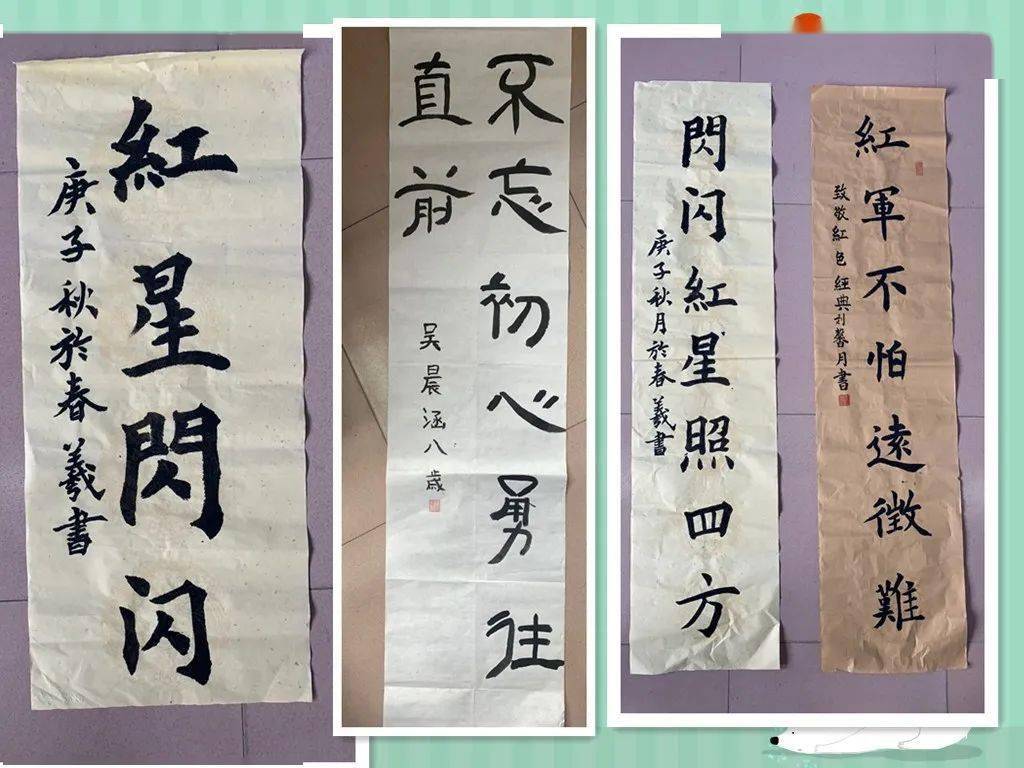 紅星閃闪
庚子秋於春羲書
不忘初心勇往
直前
吴晨涵八歳
閃闪紅星照四方
庚子秋月於春羲書
紅軍不怕遠徵難
致敬紅色經典刘馨月書